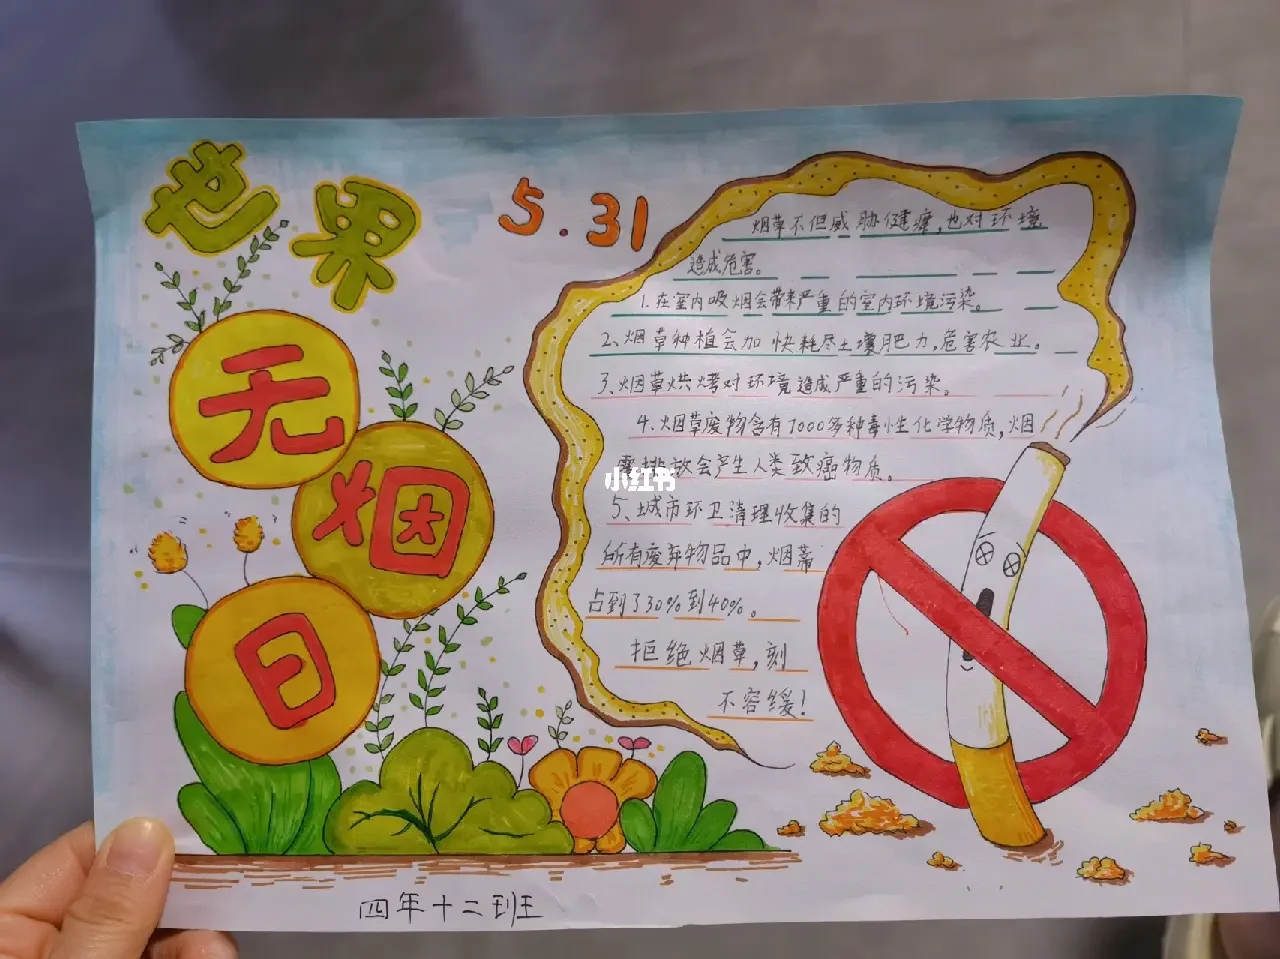 世界
5.31
无
烟
日
烟草不但威胁健康,也对环境
造成危害。
1.在室内吸烟会带来严重的室内环境污染。
2、烟草种植会加快耗尽土壤肥力,危害农业。
3、烟草烘烤对环境造成严重的污染。
4.烟草废物含有7000多种毒性化学物质,烟
排放会产生人类致癌物质。
小红书
5、城市环卫清理收集的
所有废弃物品中,烟蒂
占到了30%到40%。
拒绝烟草,刻
不容缓!
四年十二班